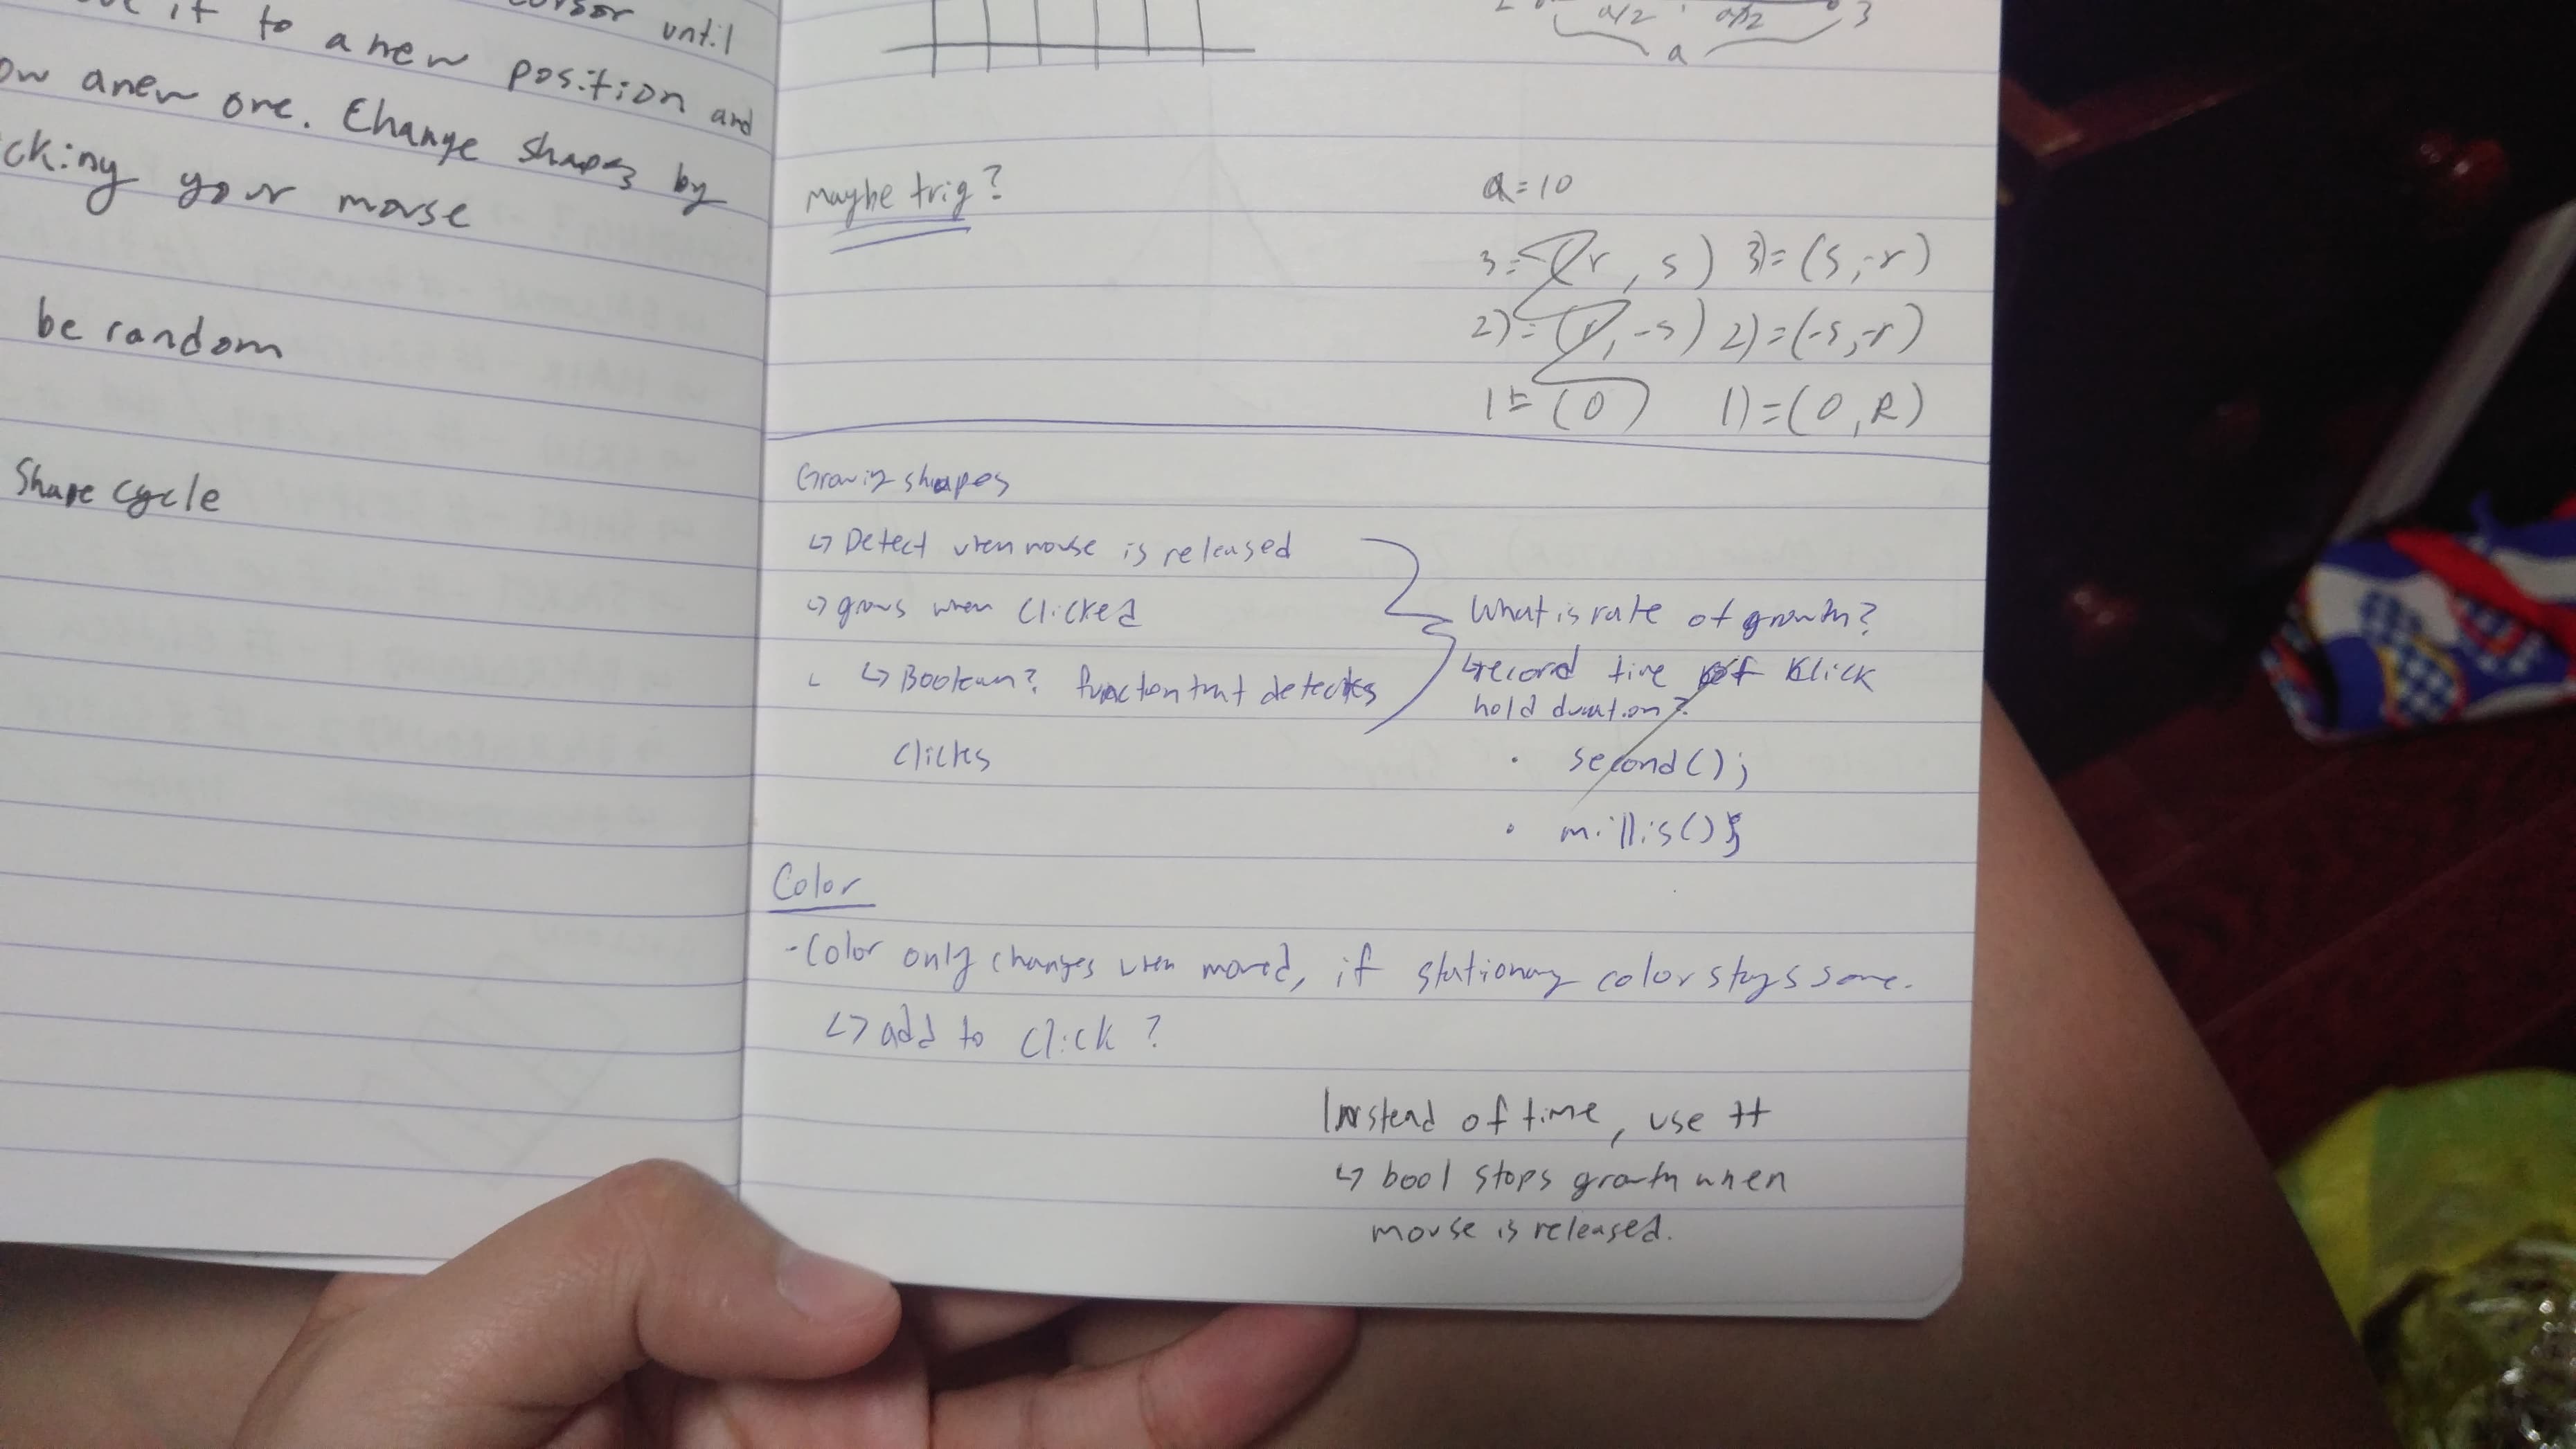 cursor until
it to a new position and
anew one. Change shapes by
cking your mouse
be random
Shape cycle
a/2 a/2 3
a
maybe trig?
a=10
3= (r, s) 3)= (s,-r)
2)= (r, -s) 2)=(-s,-r)
1= (0) 1)=(0,R)
Growing shapes
↳ Detect when mouse is released
↳ grows when clicked
↳ Boolean? function that detects
clicks
What is rate of growth?
↳record time of Klick
hold duration?
• second();
• millis();
Color
-Color only changes when moved, if stationary color stays same.
↳ add to click?
Instead of time, use ++
↳ bool stops growth when
mouse is released.